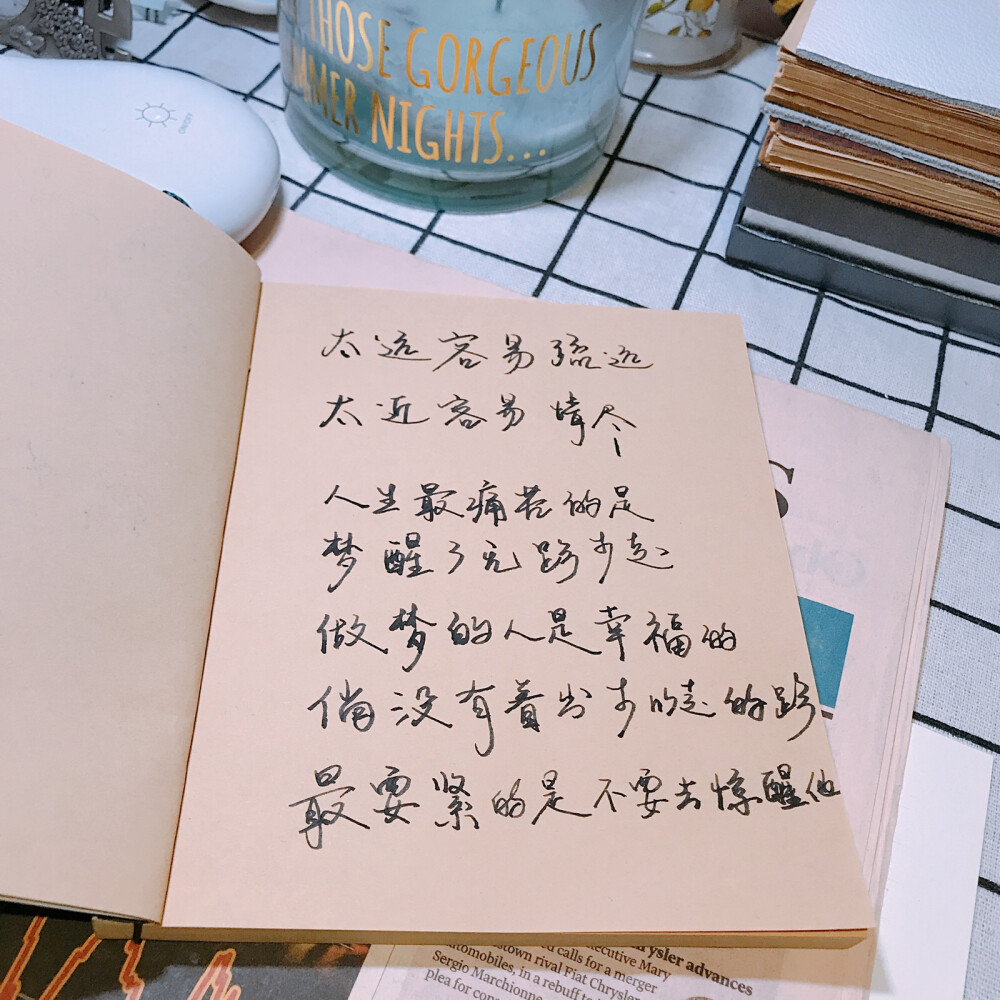 THOSE GORGEOUS
MMER NIGHTS...
ON/OFF
太远容易疏远
太近容易情尽
人生最痛苦的是
梦醒了无路可走
做梦的人是幸福的
倘没有看出可以走的路
最要紧的是不要去惊醒他
rysler advances
ecutive Mary
calls for a merger
rival Fiat Chrysler
utomobiles, in a rebuff to
Sergio Marchionne
plea for